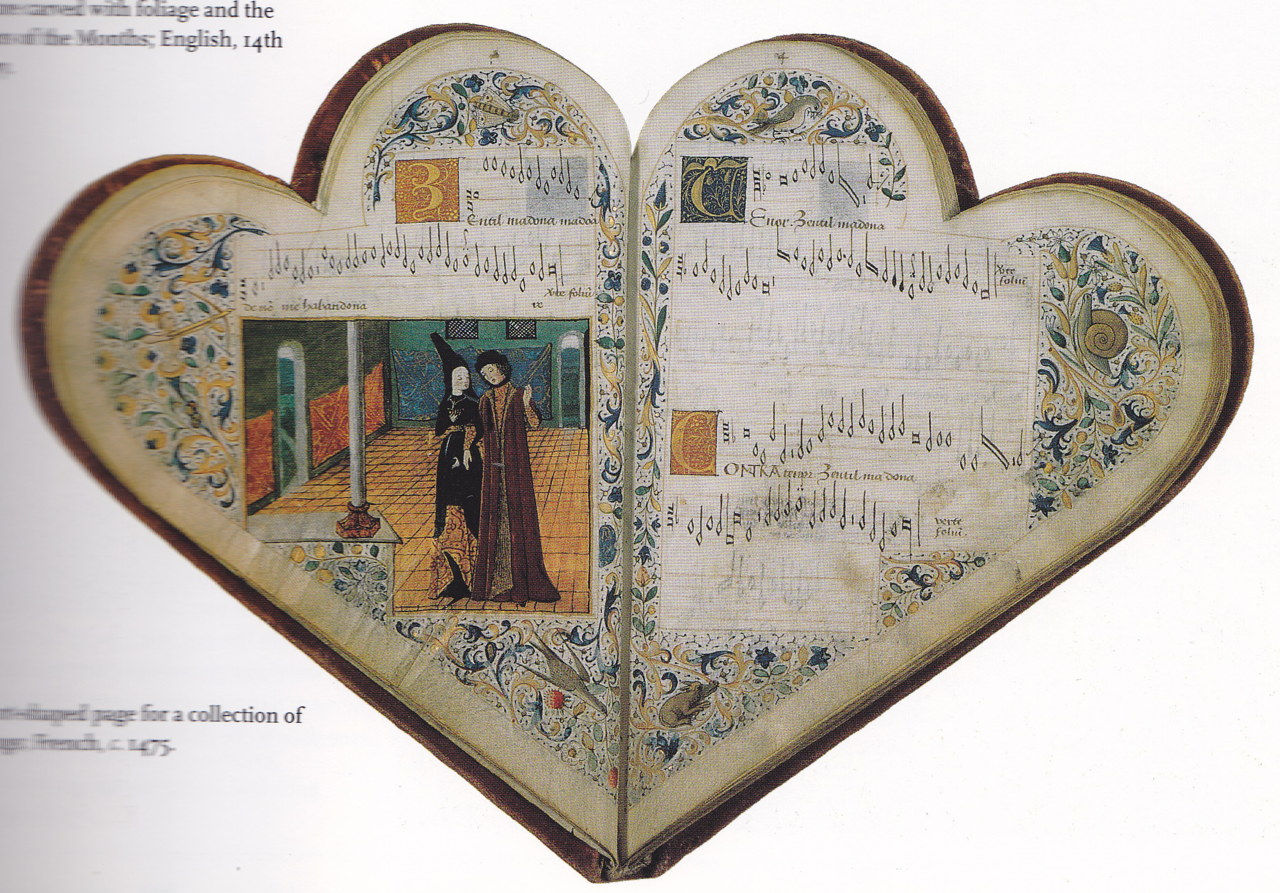 carved with foliage and the
of the Months; English, 14th
Zentil madona madoā
de nō me habandona ve
Vrte foliū
Tenor. Zentil madona
Vrte foliū
CONTRA tenor Zentil madona
verte foliū.
shaped page for a collection of
French, c. 1475.